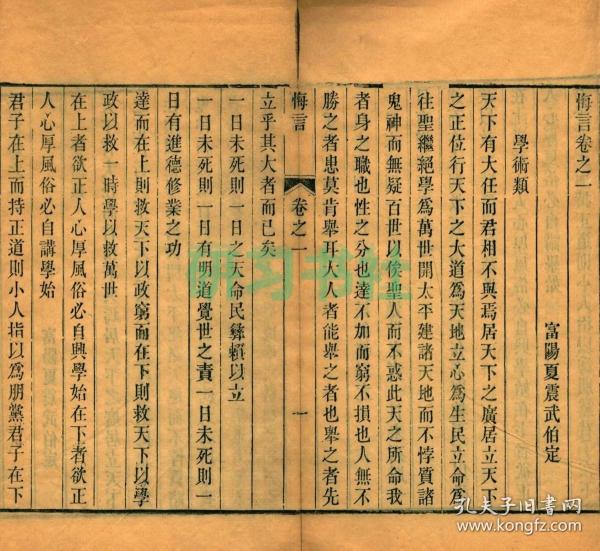 悔言卷之一
富陽夏震武伯定
學術類
天下有大任而君相不與焉居天下之廣居立天下
之正位行天下之大道為天地立心為生民立命為
往聖繼絕學為萬世開太平建諸天地而不悖質諸
鬼神而無疑百世以俟聖人而不惑此天之所命我
者身之職也性之分也達不加而窮不損也人無不
勝之者患莫肯舉耳大人者能舉之者也舉之者先
悔言
卷之一
一
立乎其大者而已矣
一日未死則一日之天命民彝賴以立
一日未死則一日有明道覺世之責一日未死則一
日有進德修業之功
達而在上則救天下以政窮而在下則救天下以學
政以救一時學以救萬世
在上者欲正人心厚風俗必自興學始在下者欲正
人心厚風俗必自講學始
君子在上而持正道則小人指以為朋黨君子在下
研习书社
孔夫子旧书网
www.kongfz.com